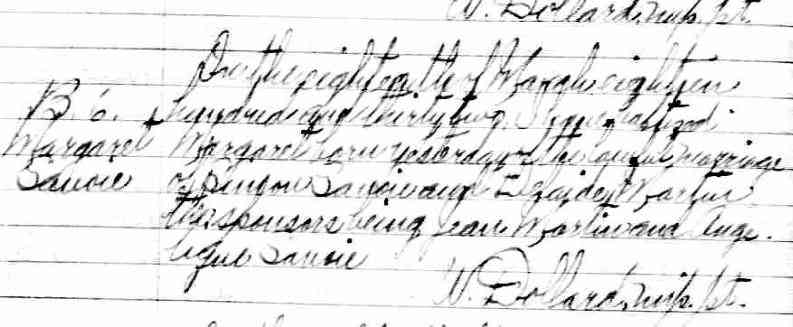 W. Dollard, mip. pt.
On the eighth of March eighteen
B. 6. hundred and thirty two, I have baptized
Margaret Margaret born yesterday of the lawful marriage
Savoie of Simeon Savoie and Martin
the sponsors being Jean Martin and Ange-
lique Savoie
W. Dollard, mip. pt.